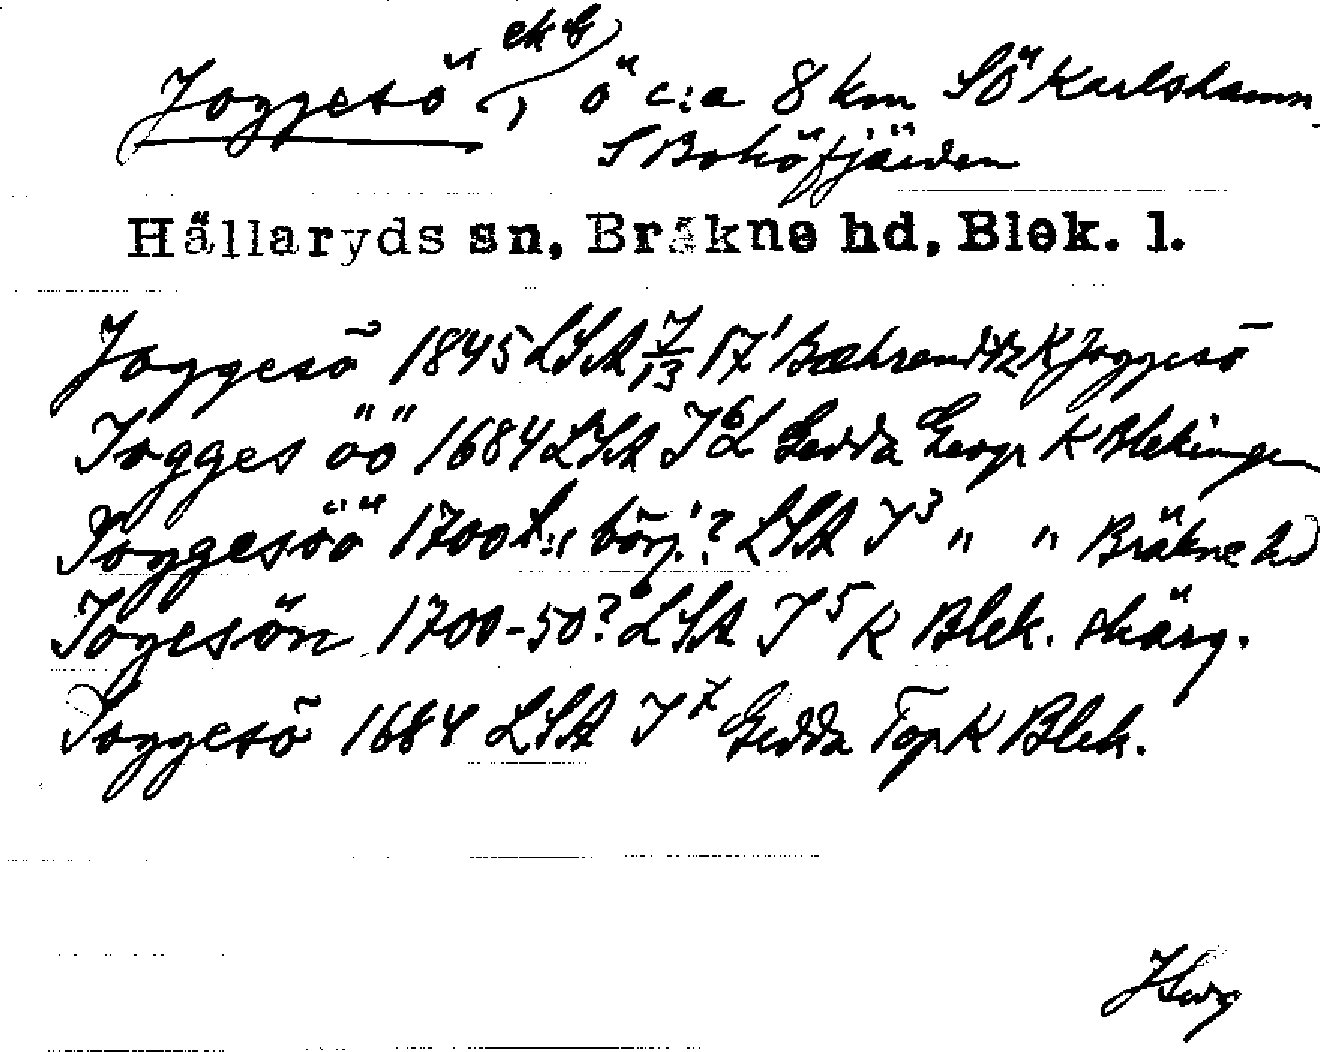 ekb
Joggesö, ö c:a 8 km SÖ Karlshamn
S Boköfjärden
Hällaryds sn, Bräkne hd, Blek. l.
Joggesö 1845 LSA 7/13 17' Bæhrendtz K Joggesö
Jogges öö 1684 LSA J6 Gedda Geogr K Blekingen
Joggesöö 1700 t. börj.? LSA J3 " " Bräkne hd
Jogesön 1700-50? LSA J5 K Blek. skärg.
Joggesö 1684 LSA J7 Gedda Top K Blek.